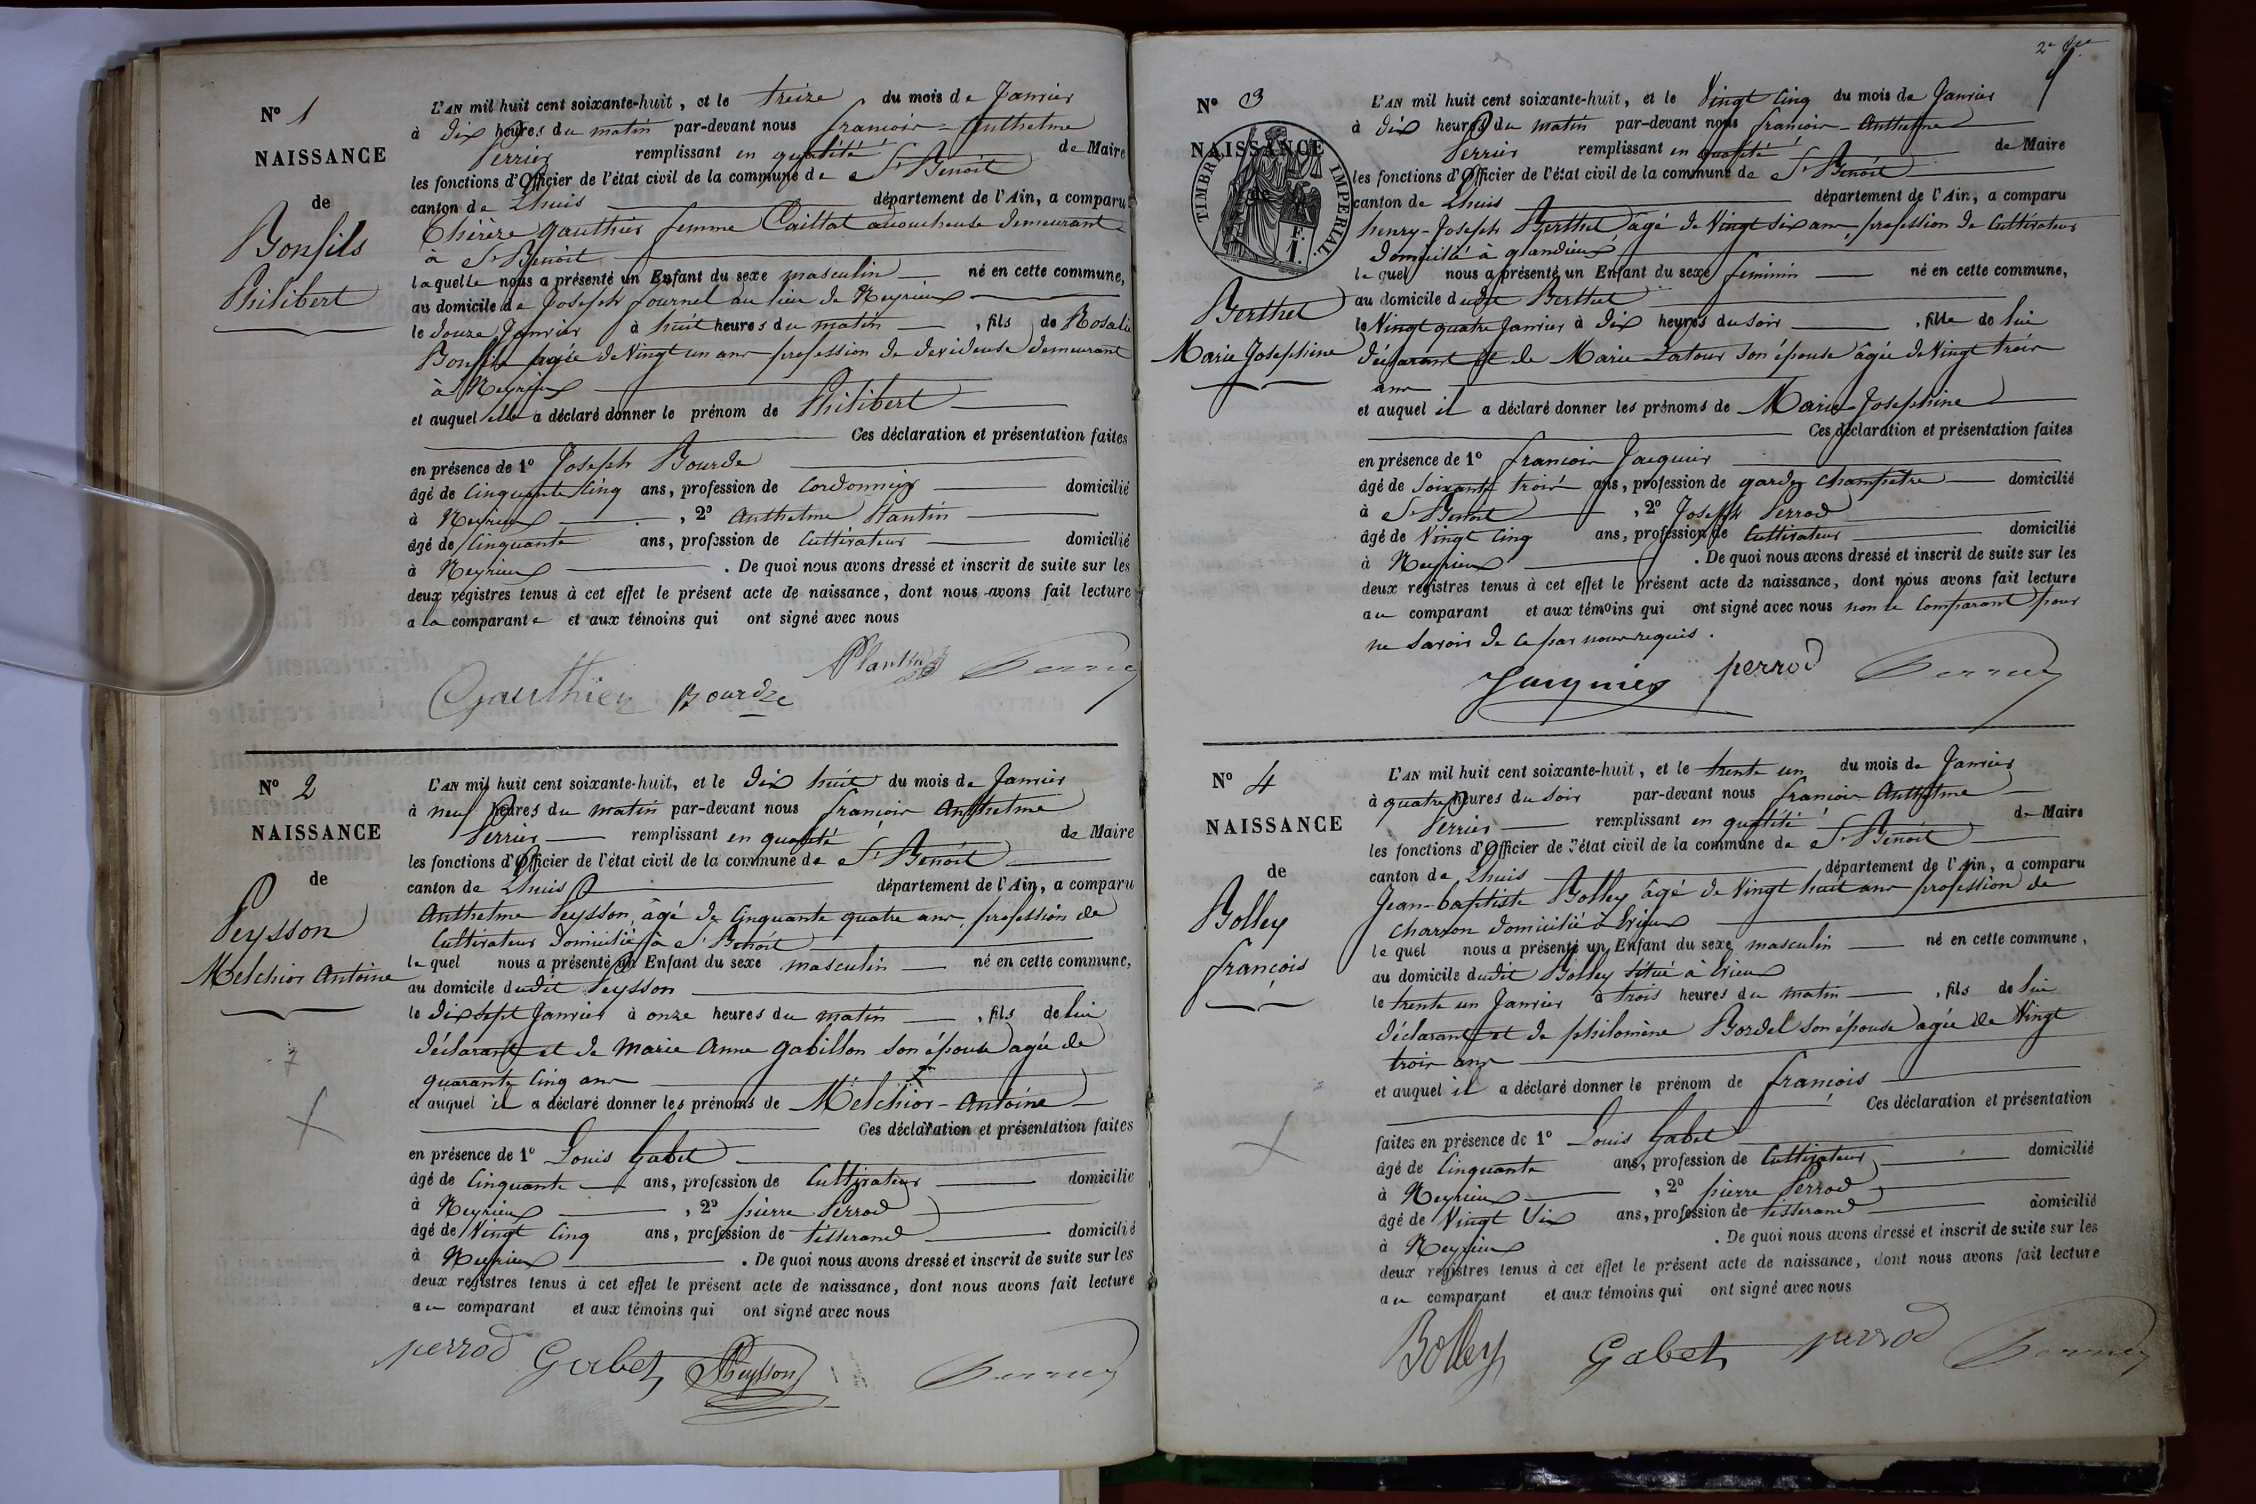 N° 1
NAISSANCE
de
Bonfils
Philibert
L'AN mil huit cent soixante-huit, et le treize du mois de Janvier
à dix heures du matin par-devant nous françois-Anthelme
Perrier remplissant en qualité de Maire
les fonctions d'Officier de l'état civil de la commune de St Benoit
canton de Lhuis département de l'Ain, a comparu
Thérèze Gauthier femme Caillat accoucheuse demeurant
à St Benoit
laquelle nous a présenté un Enfant du sexe masculin né en cette commune,
au domicile de Joseph fournel au lieu de Neyrieux
le douze Janvier à huit heures du matin , fils de Rosalie
Bonfils agée de Vingt un ans profession de devideuse demeurant
à Neyrieux
et auquel elle a déclaré donner le prénom de Philibert
Ces déclaration et présentation faites
en présence de 1° Joseph Bourde
âgé de Cinquante Cinq ans, profession de Cordonnier domicilié
à Neyrieux , 2° Anthelme Plantin
âgé de Cinquante ans, profession de Cultivateur domicilié
à Neyrieux . De quoi nous avons dressé et inscrit de suite sur les
deux registres tenus à cet effet le présent acte de naissance, dont nous avons fait lecture
a la comparante et aux témoins qui ont signé avec nous
Gauthier Bourde Plantin Perrier
N° 2
NAISSANCE
de
Peysson
Melchior Antoine
L'AN mil huit cent soixante-huit, et le dix huit du mois de Janvier
à neuf heures du matin par-devant nous françois Anthelme
Perrier remplissant en qualité de Maire
les fonctions d'Officier de l'état civil de la commune de St Benoit
canton de Lhuis département de l'Ain, a comparu
Anthelme Peysson, âgé de Cinquante quatre ans, profession de
Cultivateur domicilié à St Benoit
lequel nous a présenté un Enfant du sexe masculin né en cette commune,
au domicile dudit Peysson
le dix sept Janvier à onze heures du matin , fils de lui
déclarant et de Marie Anne Gabillon son épouse agée de
quarante Cinq ans
et auquel il a déclaré donner les prénoms de Melchior-Antoine
Ces déclaration et présentation faites
en présence de 1° Louis Gabet
âgé de Cinquante ans, profession de Cultivateur domicilié
à Neyrieux , 2° pierre Perrod
âgé de Vingt Cinq ans, profession de tisserand domicilié
à Neyrieux . De quoi nous avons dressé et inscrit de suite sur les
deux registres tenus à cet effet le présent acte de naissance, dont nous avons fait lecture
au comparant et aux témoins qui ont signé avec nous
perrod Gabet Peysson Perrier
N° 3
NAISSANCE
TIMBRE IMPERIAL
Berthet
Marie Josephine
L'AN mil huit cent soixante-huit, et le Vingt Cinq du mois de Janvier
à dix heures du matin par-devant nous françois-Anthelme
Perrier remplissant en qualité de Maire
les fonctions d'Officier de l'état civil de la commune de St Benoit
canton de Lhuis département de l'Ain, a comparu
henry-Joseph Berthet âgé de Vingt six ans, profession de Cultivateur
domicilié à glandieu
lequel nous a présenté un Enfant du sexe féminin né en cette commune,
au domicile dudit Berthet
le Vingt quatre Janvier à dix heures du soir , fille de lui
déclarant et de Marie Latour son épouse âgée de Vingt trois
ans
et auquel il a déclaré donner les prénoms de Marie-Josephine
Ces déclaration et présentation faites
en présence de 1° françois Jacquier
âgé de soixante trois ans, profession de garde champetre domicilié
à St Benoit , 2° Joseph Perrod
âgé de Vingt Cinq ans, profession de Cultivateur domicilié
à Neyrieux . De quoi nous avons dressé et inscrit de suite sur les
deux registres tenus à cet effet le présent acte de naissance, dont nous avons fait lecture
au comparant et aux témoins qui ont signé avec nous non le Comparant pour
ne savoir de ce par nous requis.
Jacquier perrod Perrier
N° 4
NAISSANCE
de
Bolley
françois
L'AN mil huit cent soixante-huit, et le trente un du mois de Janvier
à quatre heures du soir par-devant nous françois-Anthelme
Perrier remplissant en qualité de Maire
les fonctions d'Officier de l'état civil de la commune de St Benoit
canton de Lhuis département de l'Ain, a comparu
Jean-baptiste Bolley âgé de Vingt huit ans profession de
charron domicilié à Evieux
lequel nous a présenté un Enfant du sexe masculin né en cette commune,
au domicile dudit Bolley situé à Evieux
le trente un Janvier à trois heures du matin , fils de lui
déclarant et de philomène Bordel son épouse agée de Vingt
trois ans
et auquel il a déclaré donner le prénom de françois
Ces déclaration et présentation
faites en présence de 1° Louis Gabet
âgé de Cinquante ans, profession de Cultivateur domicilié
à Neyrieux , 2° pierre Perrod
âgé de Vingt Six ans, profession de tisserand domicilié
à Neyrieux . De quoi nous avons dressé et inscrit de suite sur les
deux registres tenus à cet effet le présent acte de naissance, dont nous avons fait lecture
au comparant et aux témoins qui ont signé avec nous
Bolley Gabet perrod Perrier